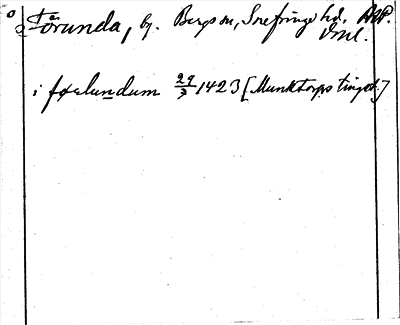 Forunda, by. Bergs sn, Snefringe hd. RAP.
Vml.
i fœlundum 29/3 1423 [Munktorps tinget.]